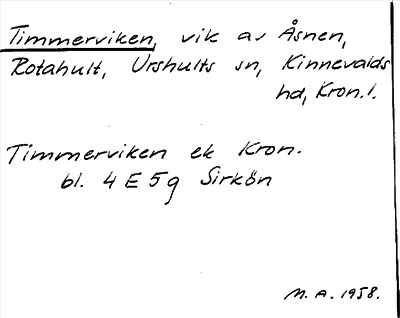 Timmerviken, vik av Åsnen,
Rotahult, Urshults sn, Kinnevalds
hd, Kron. l.
Timmerviken ek Kron.
bl. 4 E 5 g Sirkön
M. A. 1958.